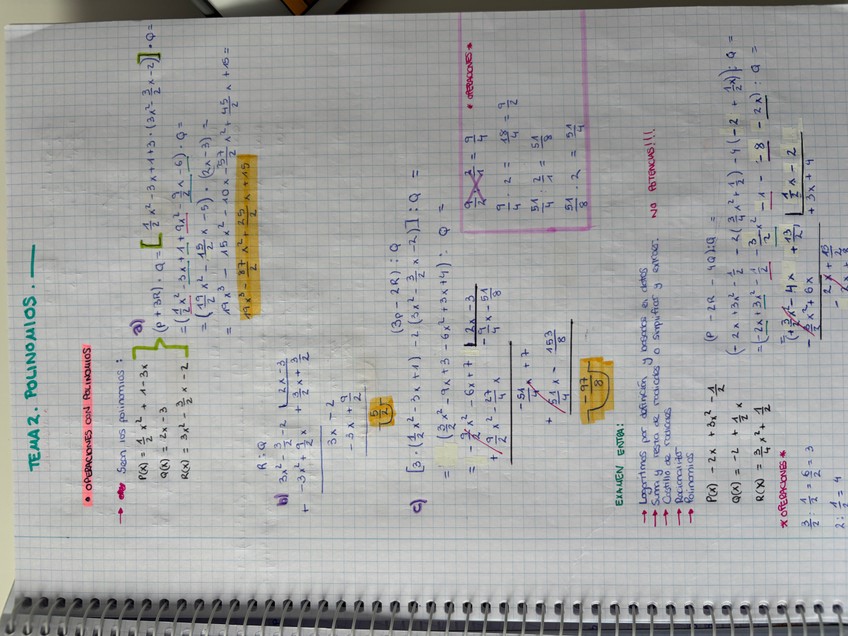 TEMA 2. POLINOMIOS.
• OPERACIONES CON POLINOMIOS
→ Sean los polinomios:
P(x) = 1/2 x² + 1 - 3x
Q(x) = 2x - 3
R(x) = 3x² - 3/2 x - 2
a)
(P + 3R) · Q = [1/2 x² - 3x + 1 + 3 · (3x² - 3/2 x - 2)] · Q =
= (1/2 x² - 3x + 1 + 9x² - 9/2 x - 6) · Q =
= (19/2 x² - 15/2 x - 5) · (2x - 3) =
= 19x³ - 15x² - 10x - 57/2 x² + 45/2 x + 15 =
19x³ - 87/2 x² + 25/2 x + 15
R : Q
b) 3x² - 3/2 - 2 | 2x - 3
+ - 3x² + 9/2 x 3/2 x + 3/2
3x - 2
- 3x + 9/2
5/2
c) (3P - 2R) : Q
[3 · (1/2 x² - 3x + 1) - 2 (3x² - 3/2 x - 2)] : Q =
= (3/2 x² - 9x + 3 - 6x² + 3x + 4) : Q =
= - 9/2 x² - 6x + 7 | 2x - 3
+ 9/2 x² - 27/4 x - 9/4 x - 51/8
- 51/4 + 7
+ 51/4 x - 153/8
- 97/8
• OPERACIONES •
9/2 · 2/1 = 9/4
9/4 · 2 = 18/4 = 9/2
51/4 : 2/1 = 51/8
51/8 · 2 = 51/4
EXAMEN ENTRA:
→ Logaritmos por definición y basados en datos NO POTENCIAS!!!
→ Suma y resta de radicales o simplificar y extraer.
→ Castillo de radicales
→ Racionalizar
→ Polinomios
P(x) - 2x + 3x² - 1/2
Q(x) = -2 + 1/2 x
R(x) = 3/4 x² + 1/2
(P - 2R - 4Q) : Q =
(-2x + 3x² - 1/2 - 2 (3/4 x² + 1/2) - 4 (-2 + 1/2 x)) : Q =
= (-2x + 3x² - 1/2 - 3/2 x² - 1 - - 8 - 2x) : Q =
= (+ 3/2 x² - 4x + 13/2 | 1/2 x - 2
- 3/2 x² + 6x + 3x + 4
✱ OPERACIONES ✱
3/2 : 1/2 = 6/2 = 3
2 : 1/2 = 4